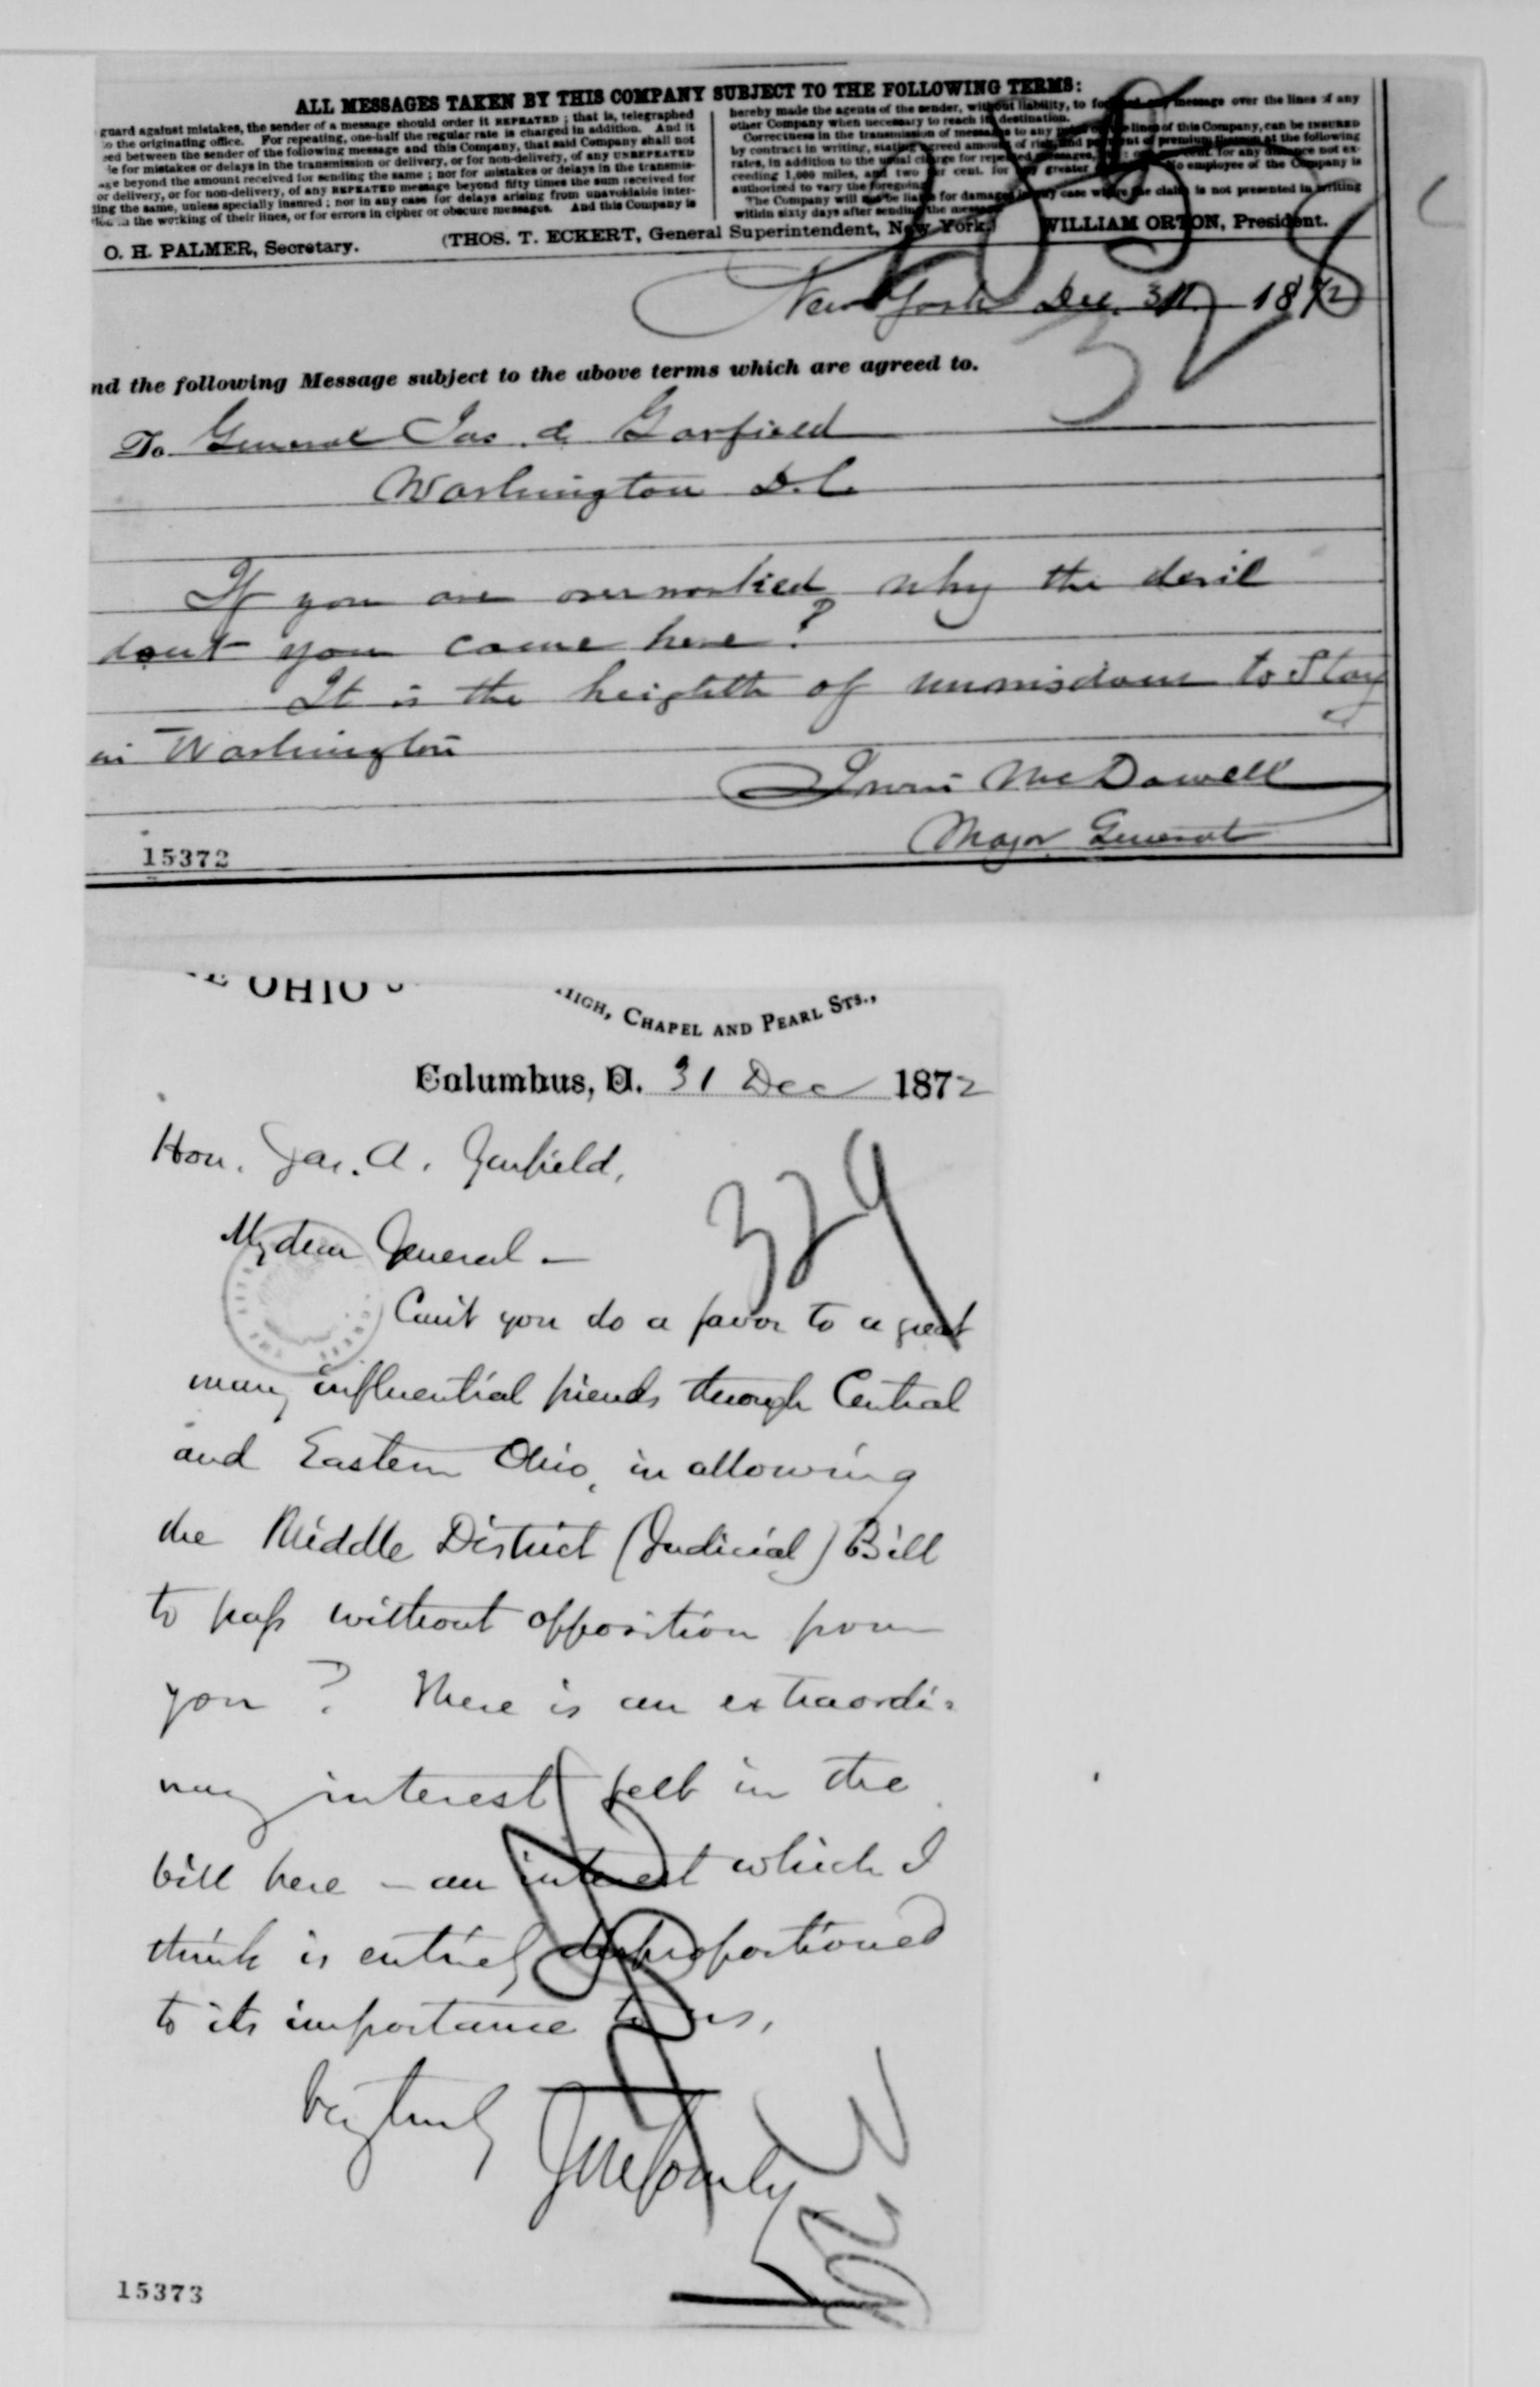 ALL MESSAGES TAKEN BY THIS COMPANY SUBJECT TO THE FOLLOWING TERMS:
guard against mistakes, the sender of a message should order it REPEATED ; that is, telegraphed
to the originating office. For repeating, one-half the regular rate is charged in addition. And it
between the sender of the following message and this Company, that said Company shall not
for mistakes or delays in the transmission or delivery, or for non-delivery, of any UNREPEATED
beyond the amount received for sending the same ; nor for mistakes or delays in the transmis-
or delivery, or for non-delivery, of any REPEATED message beyond fifty times the sum received for
ing the same, unless specially insured ; nor in any case for delays arising from unavoidable inter-
in the working of their lines, or for errors in cipher or obscure messages. And this Company is
hereby made the agents of the sender, without liability, to forward any message over the lines of any
other Company when necessary to reach its destination.
Correctness in the transmission of messages to any point on the lines of this Company, can be INSURED
by contract in writing, stating agreed amount of risk, and payment of premium thereon at the following
rates, in addition to the usual charge for repeated messages, one per cent. for any distance not ex-
ceeding 1,000 miles, and two per cent. for any greater distance. No employee of the Company is
authorized to vary the foregoing.
The Company will not be liable for damages in any case where the claim is not presented in writing
within sixty days after sending the message
O. H. PALMER, Secretary. (THOS. T. ECKERT, General Superintendent, New York.) WILLIAM ORTON, President.
New York Dec. 31 1872
328
nd the following Message subject to the above terms which are agreed to.
To General Jas. a Garfield
Washington D.C.
If you are overworked why the devil
dont you come here?
It is the heighth of unwisdom to Stay
in Washington
Irvin McDowell
Major General
15372
OHIO
HIGH, CHAPEL AND PEARL STS.,
Columbus, O. 31 Dec 1872
Hon. Jas. A. Garfield,
329
My dear General —
Can't you do a favor to a great
many influential friends through Central
and Eastern Ohio, in allowing
the Middle District (Judicial) Bill
to pass without opposition from
you? There is an extraordi-
nary interest felt in the
bill here — an interest which I
think is entirely disproportioned
to its importance to us,
Very truly
J M Comly
15373